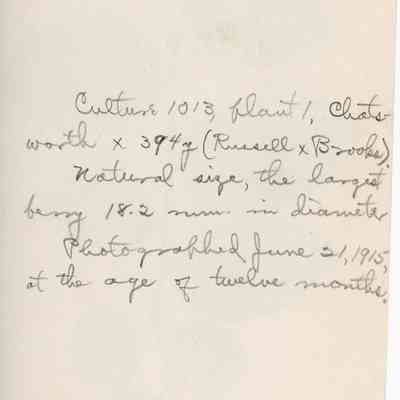 Culture 1013, plant 1, Chats-
worth x 394y (Russell x Brooks).
Natural size, the largest
berry 18.2 mm. in diameter
Photographed June 21, 1915,
at the age of twelve months.